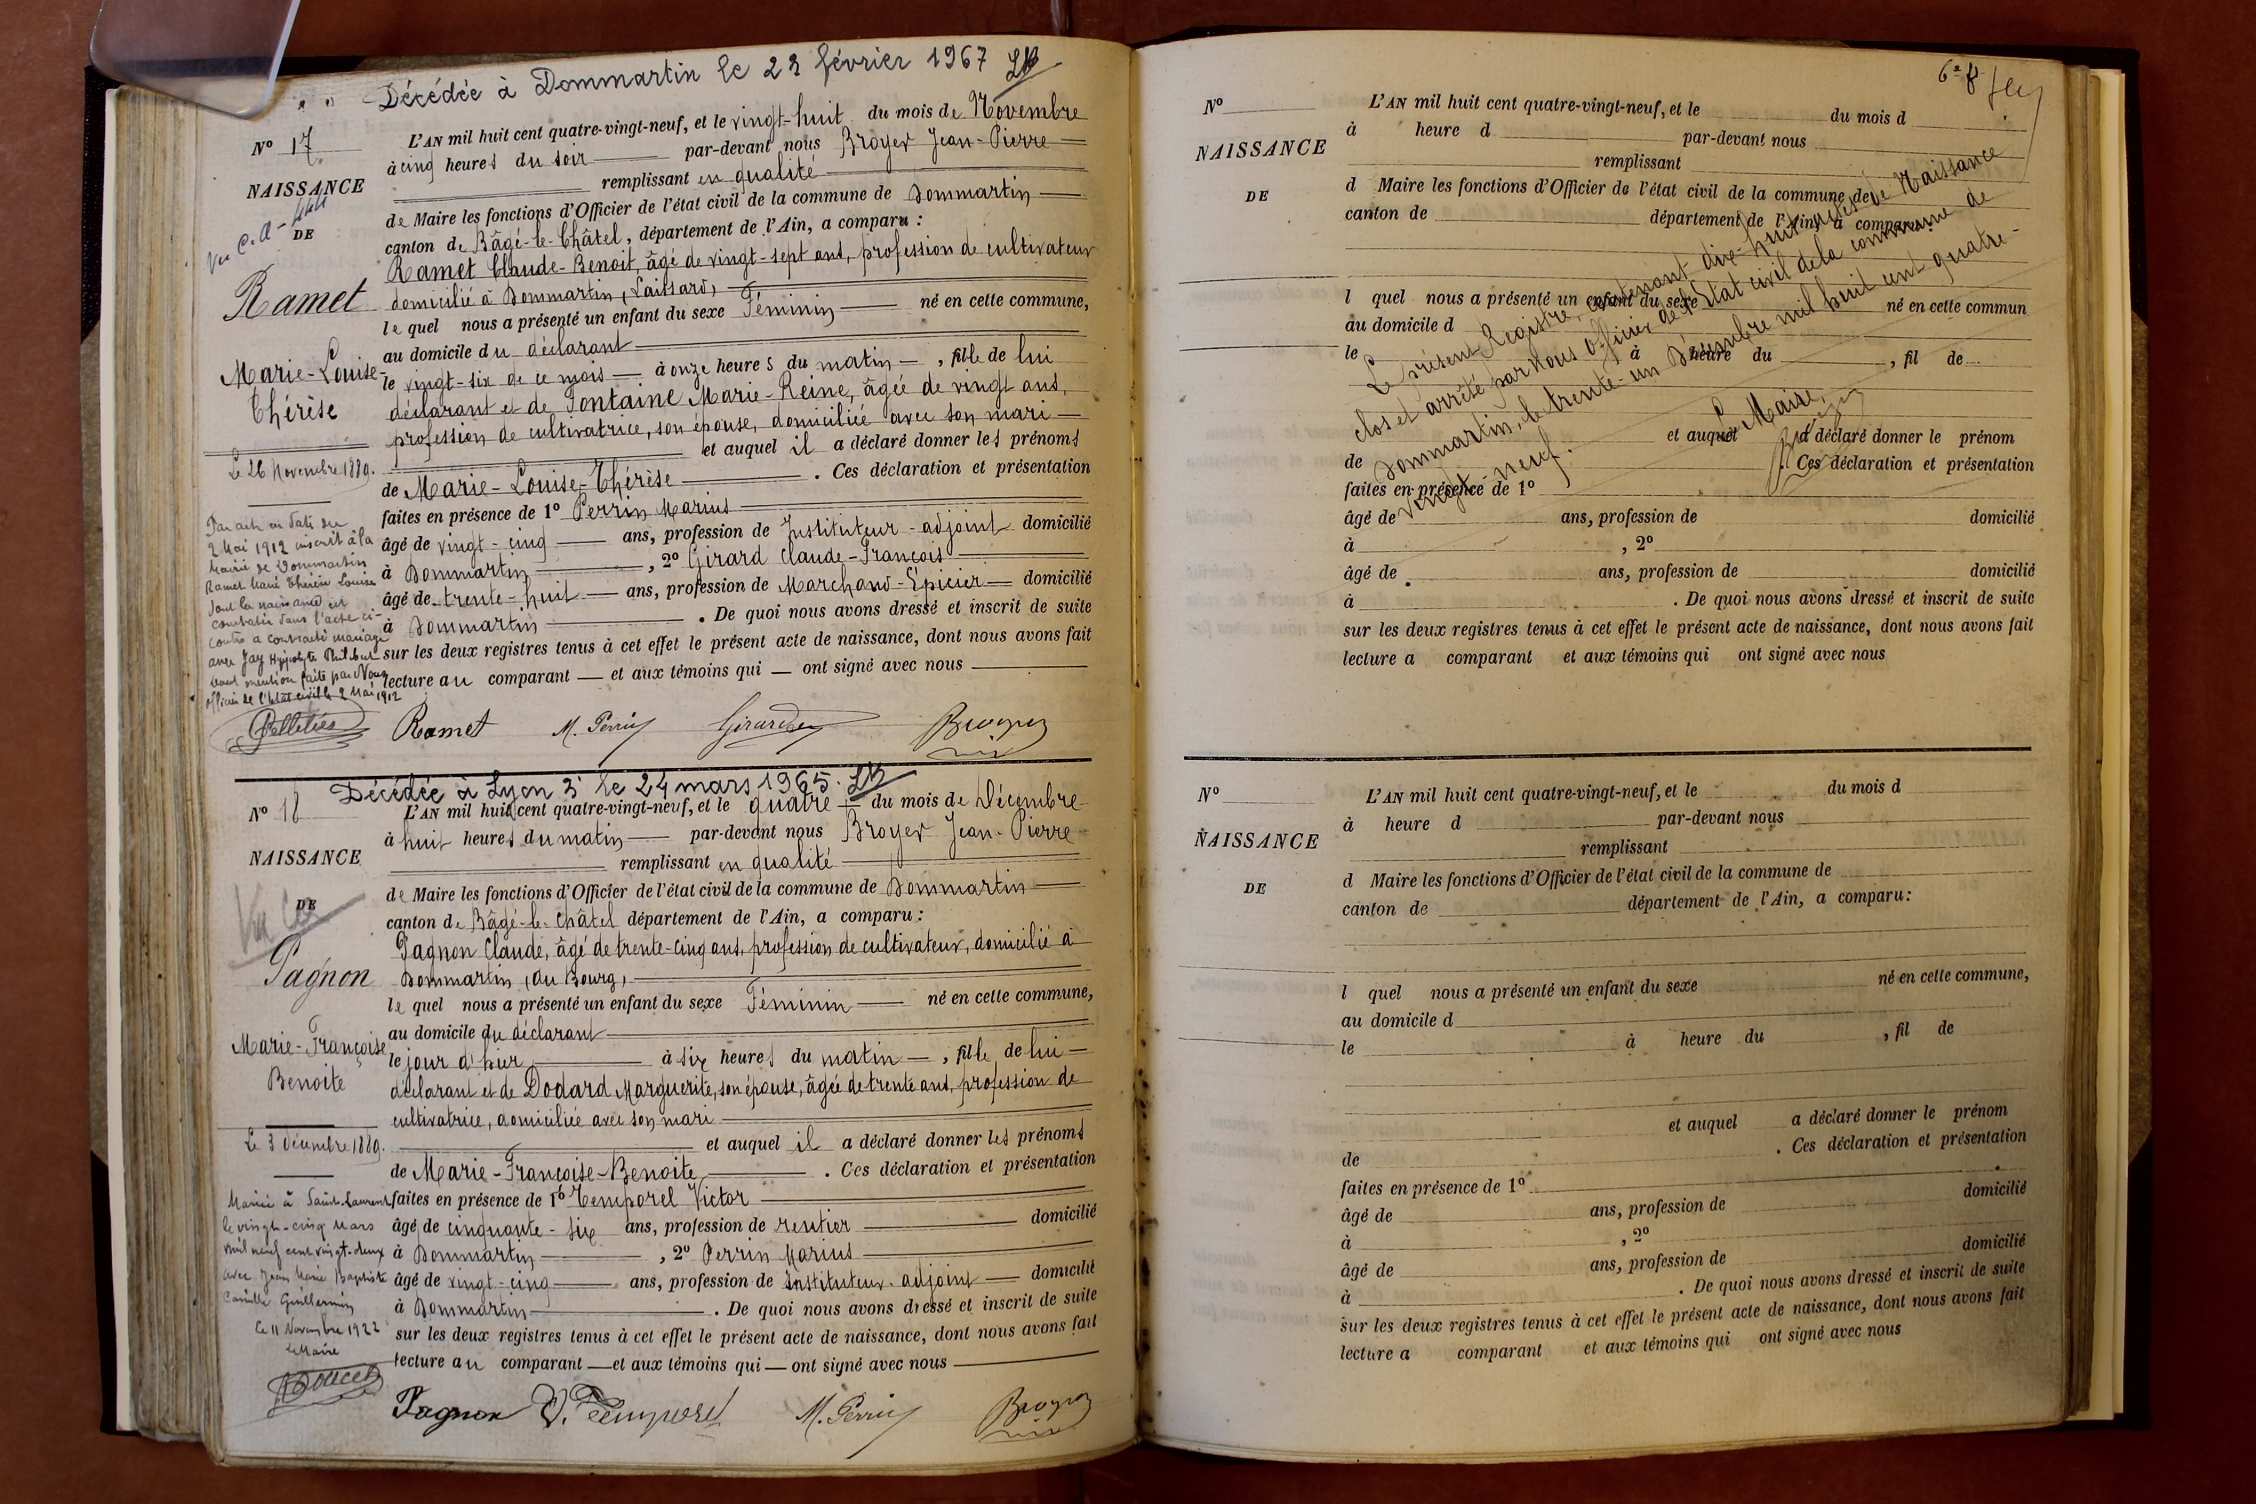 Décédée à Dommartin le 23 février 1967
N° 17
NAISSANCE
DE
Ramet
Marie-Louise-
Thérèse
Le 26 Novembre 1889.
Par acte en date du
2 Mai 1912 inscrit à la
Mairie de Dommartin
Ramet Marie Thérèse Louise
dont la naissance est
constatée dans l'acte ci-
contre a contracté mariage
avec Jay Hippolyte Philibert
dont mention faite par Nous
officier de l'état civil le 2 Mai 1912
Pelletier
L'AN mil huit cent quatre-vingt-neuf, et le vingt-huit du mois de Novembre
à cinq heures du soir par-devant nous Broyer Jean-Pierre
remplissant en qualité
de Maire les fonctions d'Officier de l'état civil de la commune de Dommartin
canton de Bâgé-le-Châtel, département de l'Ain, a comparu :
Ramet Claude-Benoit, âgé de vingt-sept ans, profession de cultivateur
domicilié à Dommartin,
le quel nous a présenté un enfant du sexe Féminin né en cette commune,
au domicile du déclarant
le vingt-six de ce mois à onze heures du matin, fille de lui
déclarant et de Fontaine Marie-Reine, âgée de vingt ans,
profession de cultivatrice, son épouse, domiciliée avec son mari
et auquel il a déclaré donner les prénoms
de Marie-Louise-Thérèse. Ces déclaration et présentation
faites en présence de 1° Perrin Marius
âgé de vingt-cinq ans, profession de Instituteur-adjoint domicilié
à Dommartin, 2° Girard Claude-François
âgé de trente-huit ans, profession de Marchand-Épicier domicilié
à Dommartin. De quoi nous avons dressé et inscrit de suite
sur les deux registres tenus à cet effet le présent acte de naissance, dont nous avons fait
lecture au comparant et aux témoins qui ont signé avec nous
Ramet M. Perrin Girard Broyer
Décédée à Lyon 3e le 24 mars 1965.
N° 18
NAISSANCE
DE
Pagnon
Marie-Françoise
Benoite
Le 3 Décembre 1889.
Mariée à Saint-Laurent
le vingt-cinq Mars
mil neuf cent vingt-deux
avec Jean Marie Baptiste
Camille Guillermin
Le 11 Novembre 1922
Le Maire
L'AN mil huit cent quatre-vingt-neuf, et le quatre du mois de Décembre
à huit heures du matin par-devant nous Broyer Jean-Pierre
remplissant en qualité
de Maire les fonctions d'Officier de l'état civil de la commune de Dommartin
canton de Bâgé-le-Châtel département de l'Ain, a comparu :
Pagnon Claude, âgé de trente-cinq ans, profession de cultivateur, domicilié à
Dommartin, (au Bourg,
le quel nous a présenté un enfant du sexe Féminin né en cette commune,
au domicile du déclarant
le jour d'hier à six heures du matin, fille de lui
déclarant et de Dodard Marguerite, son épouse, âgée de trente ans, profession de
cultivatrice, domiciliée avec son mari
et auquel il a déclaré donner les prénoms
de Marie-Françoise-Benoite. Ces déclaration et présentation
faites en présence de 1° Temporel Victor
âgé de cinquante-six ans, profession de rentier domicilié
à Dommartin, 2° Perrin Marius
âgé de vingt-cinq ans, profession de Instituteur-adjoint domicilié
à Dommartin. De quoi nous avons dressé et inscrit de suite
sur les deux registres tenus à cet effet le présent acte de naissance, dont nous avons fait
lecture au comparant et aux témoins qui ont signé avec nous
Pagnon V. Temporel M. Perrin Broyer
N°
NAISSANCE
DE
L'AN mil huit cent quatre-vingt-neuf, et le du mois d
à heure d par-devant nous
remplissant
d Maire les fonctions d'Officier de l'état civil de la commune de
canton de département de l'Ain, a comparu
l quel nous a présenté un enfant du sexe né en cette commun
au domicile d
le à heure du, fil de
et auquel a déclaré donner le prénom
de. Ces déclaration et présentation
faites en présence de 1°
âgé de ans, profession de domicilié
à, 2°
âgé de ans, profession de domicilié
à. De quoi nous avons dressé et inscrit de suite
sur les deux registres tenus à cet effet le présent acte de naissance, dont nous avons fait
lecture a comparant et aux témoins qui ont signé avec nous
Le présent Registre, contenant dix-huit actes de Naissance
clos et arrêté par nous Officier de l'Etat civil de la commune de
Dommartin, le trente-un Décembre mil huit cent quatre-
vingt-neuf.
Le Maire,
Broyer
N°
NAISSANCE
DE
L'AN mil huit cent quatre-vingt-neuf, et le du mois d
à heure d par-devant nous
remplissant
d Maire les fonctions d'Officier de l'état civil de la commune de
canton de département de l'Ain, a comparu :
l quel nous a présenté un enfant du sexe né en cette commune,
au domicile d
le à heure du, fil de
et auquel a déclaré donner le prénom
de. Ces déclaration et présentation
faites en présence de 1°
âgé de ans, profession de domicilié
à, 2°
âgé de ans, profession de domicilié
à. De quoi nous avons dressé et inscrit de suite
sur les deux registres tenus à cet effet le présent acte de naissance, dont nous avons fait
lecture a comparant et aux témoins qui ont signé avec nous